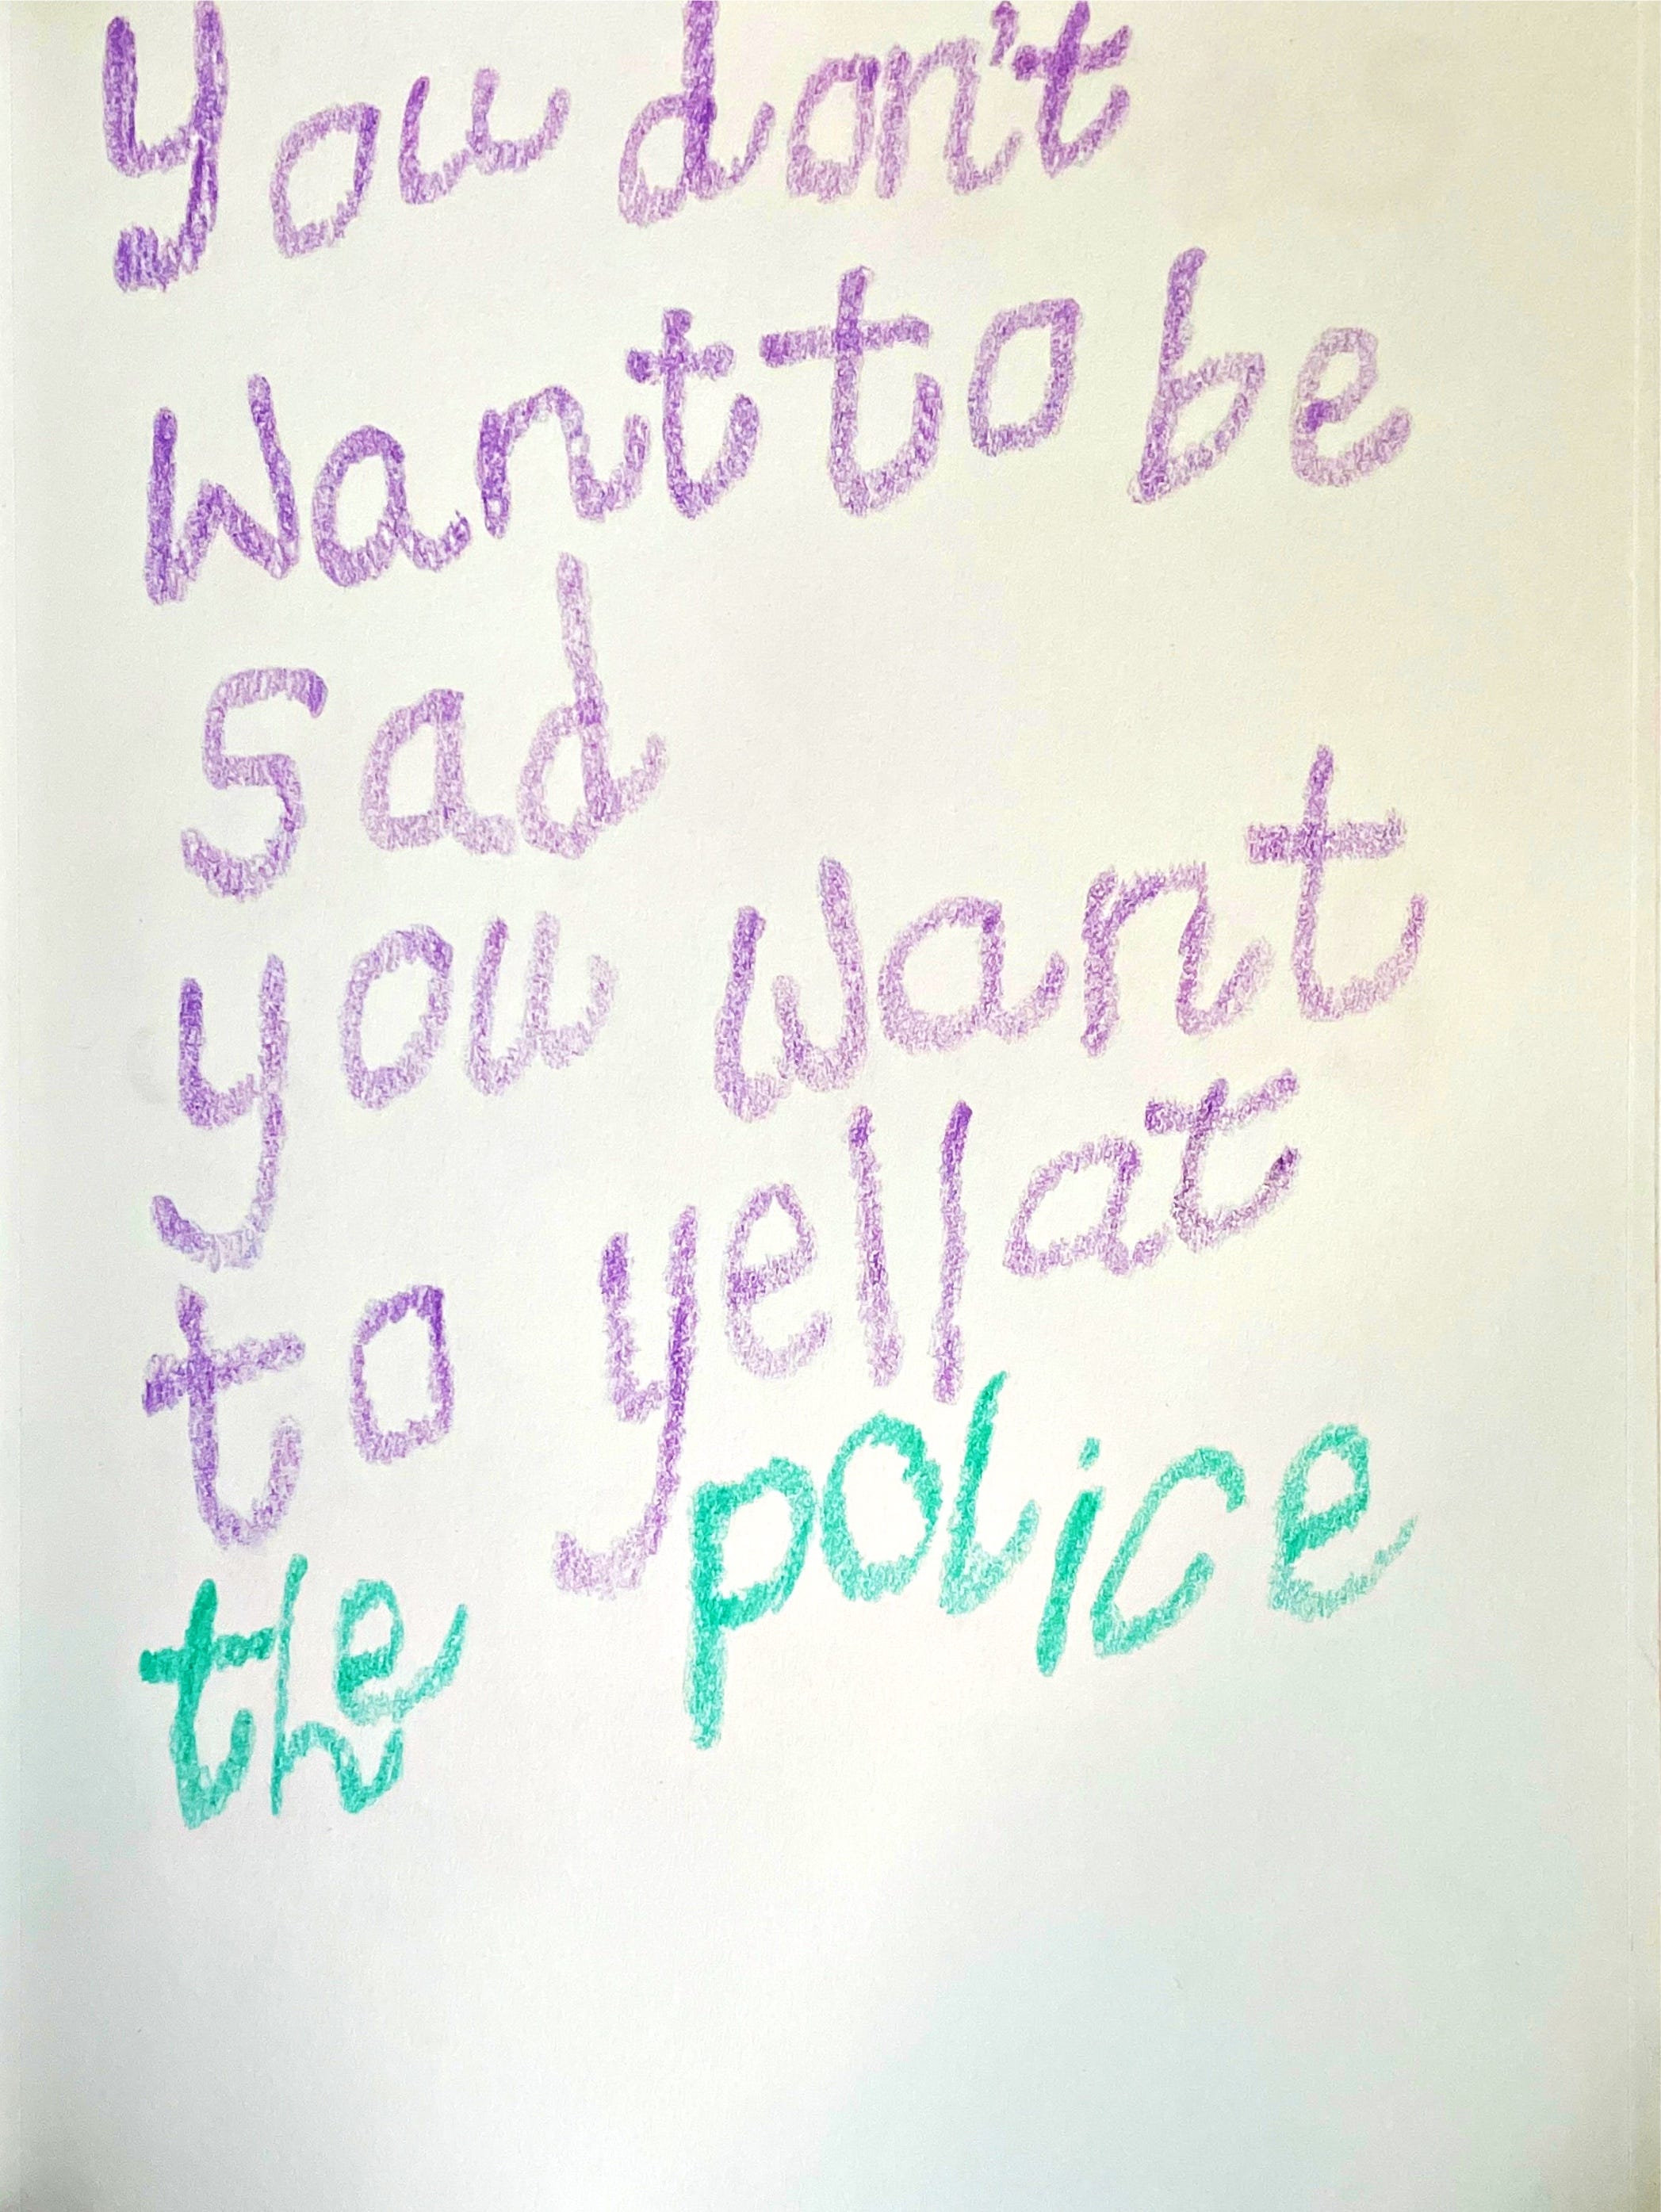 You don't
Want to be
sad
you want
to yell at
the police